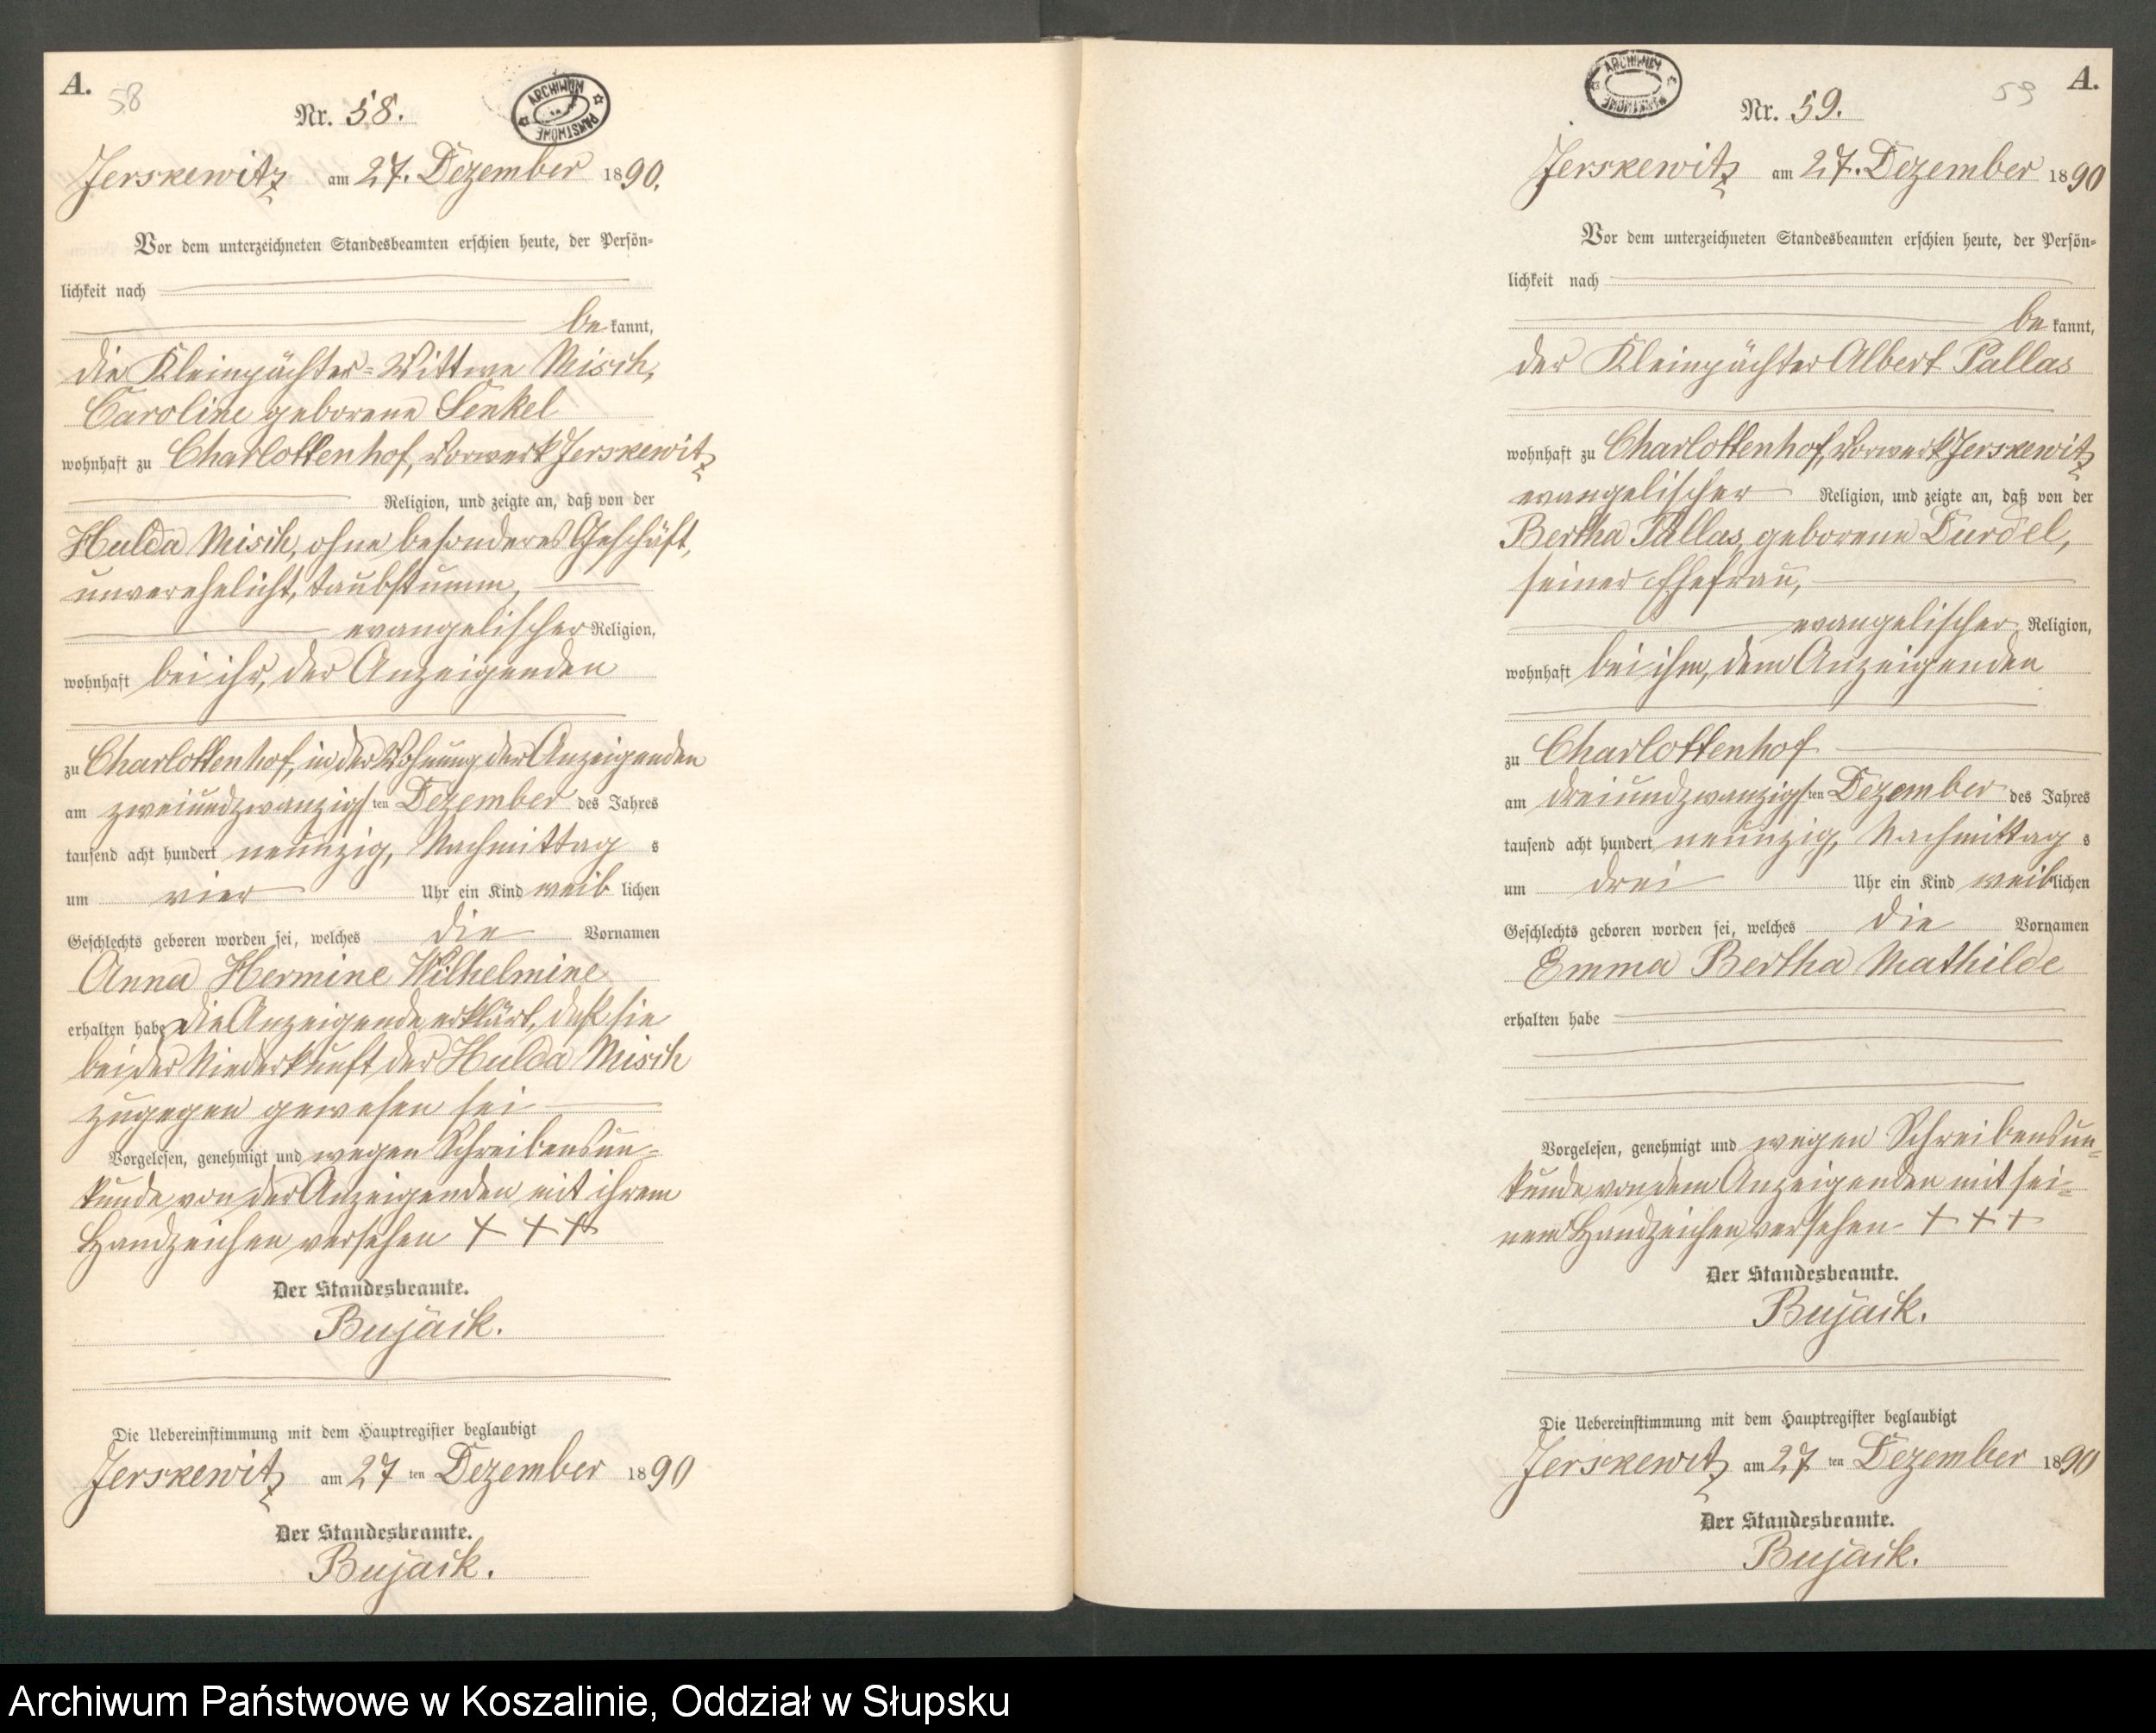 A.
58
Nr. 58.
ARCHIWUM PAŃSTWOWE
Jerskewitz am 27. Dezember 1890.
Vor dem unterzeichneten Standesbeamten erschien heute, der Persön-
lichkeit nach
bekannt,
die Kleinpächter-Wittwe Misch,
Caroline geborene Senkel
wohnhaft zu Charlottenhof, Vorwerk Jerskewitz
Religion, und zeigte an, daß von der
Hulda Misch, ohne besonderes Geschäft,
unverehelicht, taubstumm,
evangelischer Religion,
wohnhaft bei ihr, der Anzeigenden
zu Charlottenhof, in der Wohnung der Anzeigenden
am zweiundzwanzigsten Dezember des Jahres
tausend acht hundert neunzig, Nachmittags
um vier Uhr ein Kind weiblichen
Geschlechts geboren worden sei, welches die Vornamen
Anna Hermine Wilhelmine
erhalten habe die Anzeigende erklärt, daß sie
bei der Niederkunft der Hulda Misch
zugegen gewesen sei
Vorgelesen, genehmigt und wegen Schreibensun-
kunde von der Anzeigenden mit ihrem
Handzeichen versehen + + +
Der Standesbeamte.
Bujack.
Die Uebereinstimmung mit dem Hauptregister beglaubigt
Jerskewitz am 27 ten Dezember 1890
Der Standesbeamte.
Bujack.
ARCHIWUM PAŃSTWOWE
59
A.
Nr. 59.
Jerskewitz am 27. Dezember 1890
Vor dem unterzeichneten Standesbeamten erschien heute, der Persön-
lichkeit nach
bekannt,
der Kleinpächter Albert Pallas
wohnhaft zu Charlottenhof, Vorwerk Jerskewitz
evangelischer Religion, und zeigte an, daß von der
Bertha Pallas, geborene Durdel,
seiner Ehefrau,
evangelischer Religion,
wohnhaft bei ihm, dem Anzeigenden
zu Charlottenhof
am dreiundzwanzigsten Dezember des Jahres
tausend acht hundert neunzig, Nachmittags
um drei Uhr ein Kind weiblichen
Geschlechts geboren worden sei, welches die Vornamen
Emma Bertha Mathilde
erhalten habe
Vorgelesen, genehmigt und wegen Schreibensun-
kunde von dem Anzeigenden mit sei-
nem Handzeichen versehen + + +
Der Standesbeamte.
Bujack.
Die Uebereinstimmung mit dem Hauptregister beglaubigt
Jerskewitz am 27 ten Dezember 1890
Der Standesbeamte.
Bujack.
Archiwum Państwowe w Koszalinie, Oddział w Słupsku